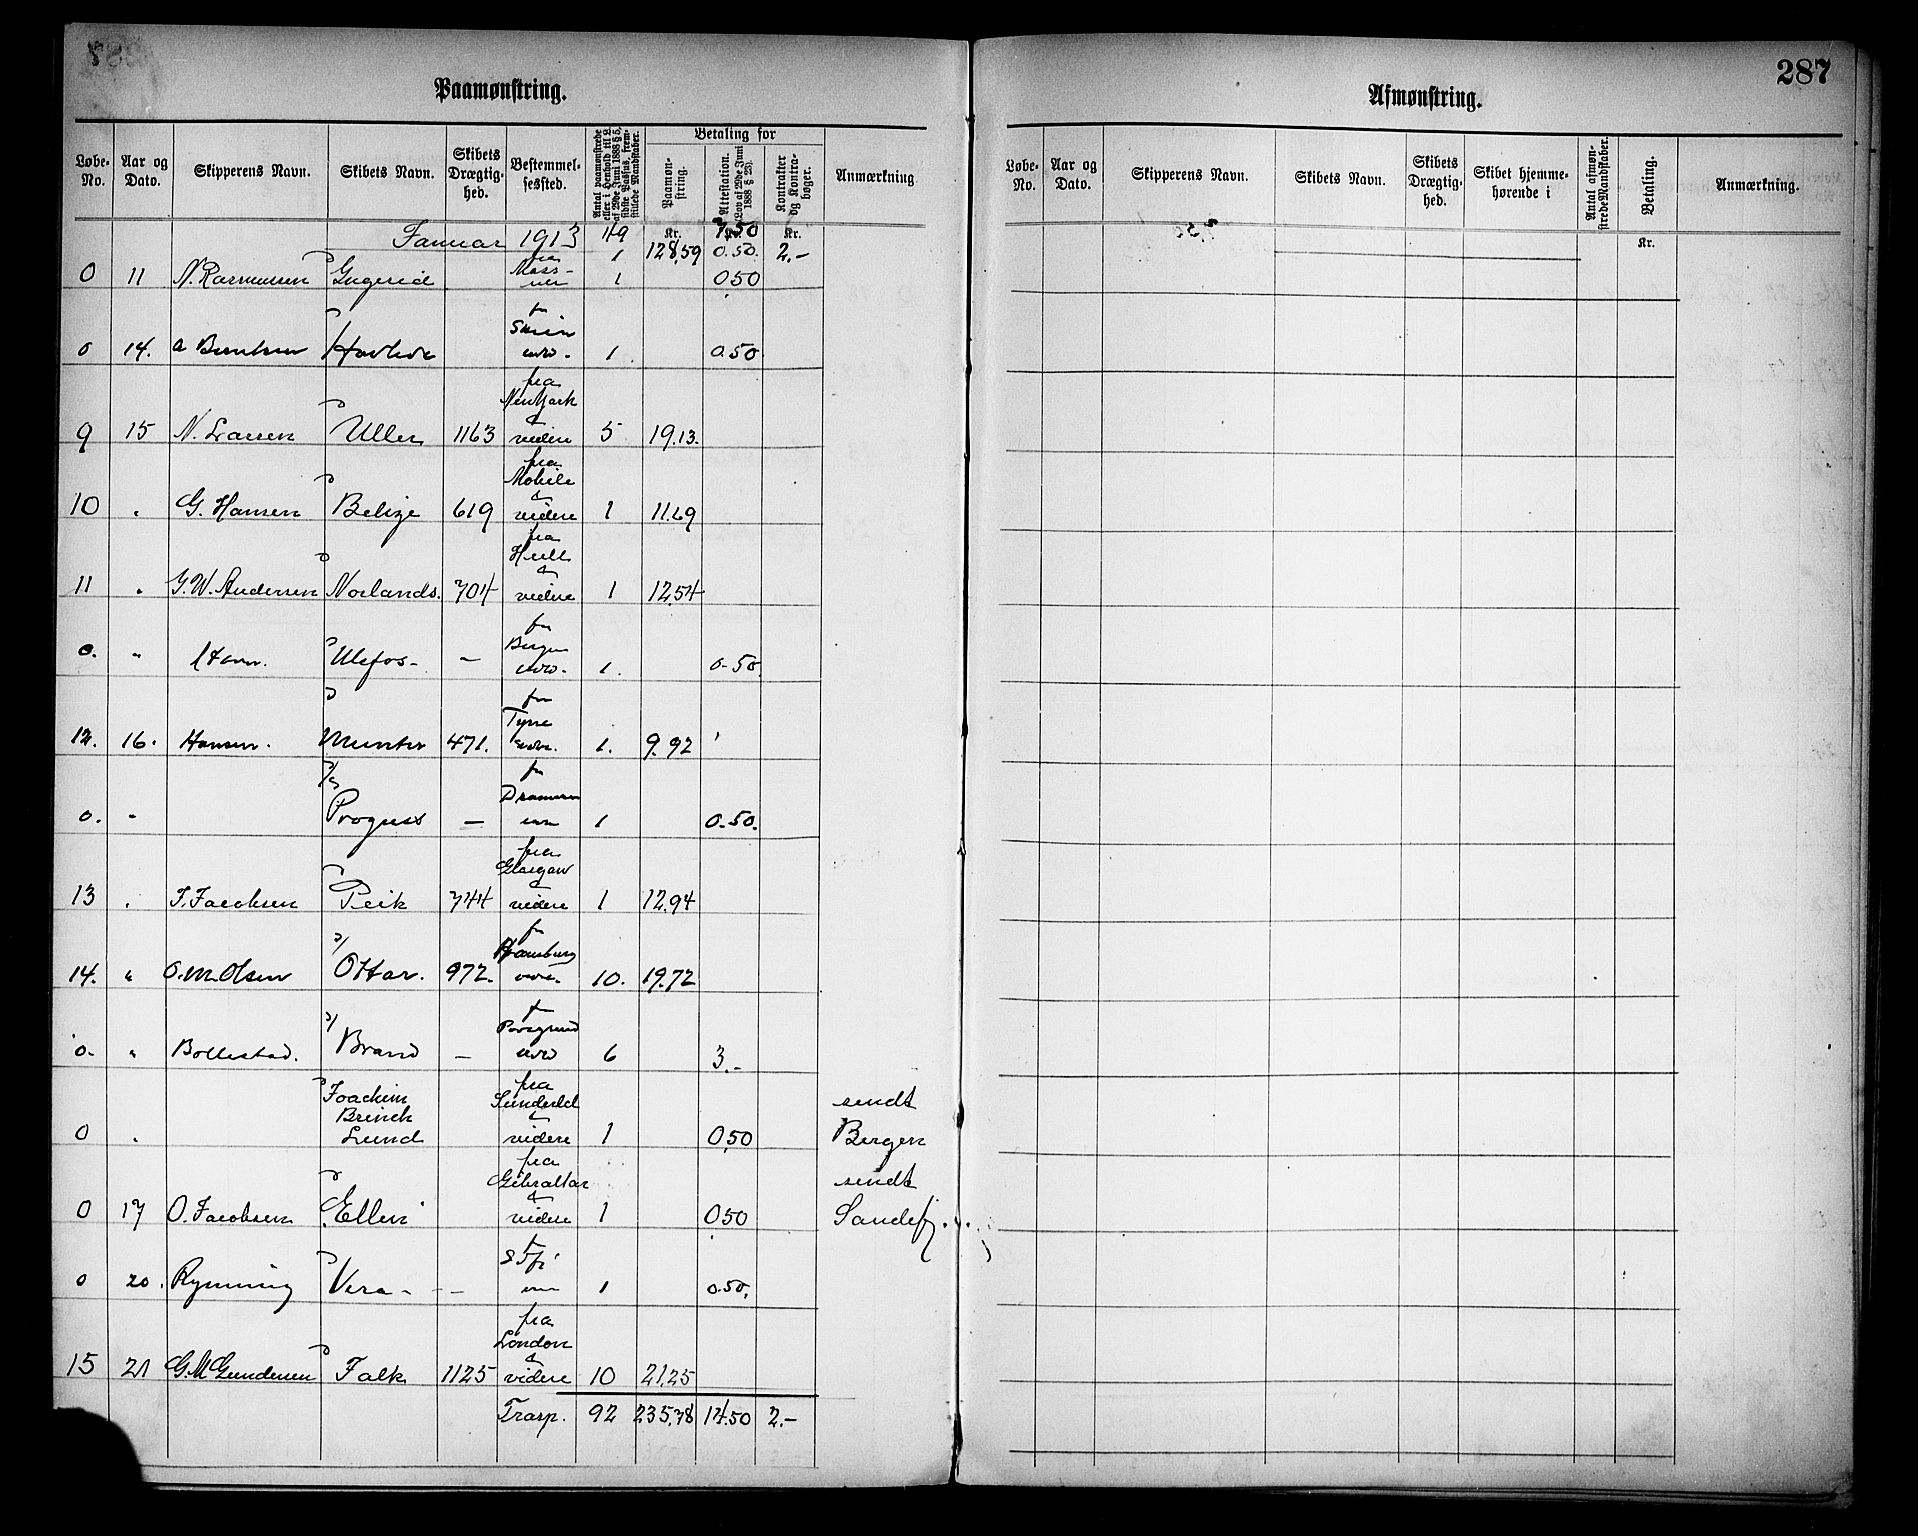 Paamønstring.
Løbe-No. | Aar og Dato. | Skipperens Navn. | Skibets Navn. | Skibets Drægtighed. | Bestemmelsessted. | Antal paamønstrede eller i Henhold til L. af 29de Juni 1888 § 5, sidste Passus, fremstillede Mandskaber. | Betaling for | Paamønstring. | Attestation. (Lov af 29de Juni 1888 § 23). | Kontrakter og Kontrabøger. | Anmærkning
Kr. Kr. Kr.
Januar 1913 49 128,59 7.50 2.-
1 0.50.
0 11 N. Rasmussen Ingerid fra Moss 1 050
0 14. Havlide fra Skien 1 0.50
9 15 N. Larsen Uller 1163 fra New York & videre 5 19.13.
10 " G. Hansen Belize 619 fra Mobile & videre 1 11.69
11 " G. W. Andersen Norlands. 704 fra Hull & videre 1 12,54
0. " Ulefos - — fra Bergen 1. 0-50.
12. 16. Hansen. Munter 471. fra Tyne 1. 9.92
0. " Progress — fra Drammen 1 0.50.
13 " J. Jacobsen Peik 744 fra Glasgow & videre 1 12.94
14. " O. M. Olsen Ottar. 972. f Hamburg 10. 19.72
0. " Bollestad. Brand — f Porsgrund 6 3.-
0 " Joachim Brinch Lund fra Sunderld & videre 1 0,50 sendt Bergen
0 17 O. Jacobsen Ellen fra Gibraltar & videre 1 0,50 sendt Sandefj.
0 20. Rynning Vera - - - f 1 0.50.
15 21 G. M. Gundersen Falk 1125 fra London & videre 10 21,25
Trasp. 92 235,78 14.50 2.-
287
Afmønstring.
Løbe-No. | Aar og Dato. | Skipperens Navn. | Skibets Navn. | Skibets Drægtighed. | Skibet hjemmehørende i | Antal afmønstrede Mandskaber. | Betaling. | Anmærkning.
Kr.